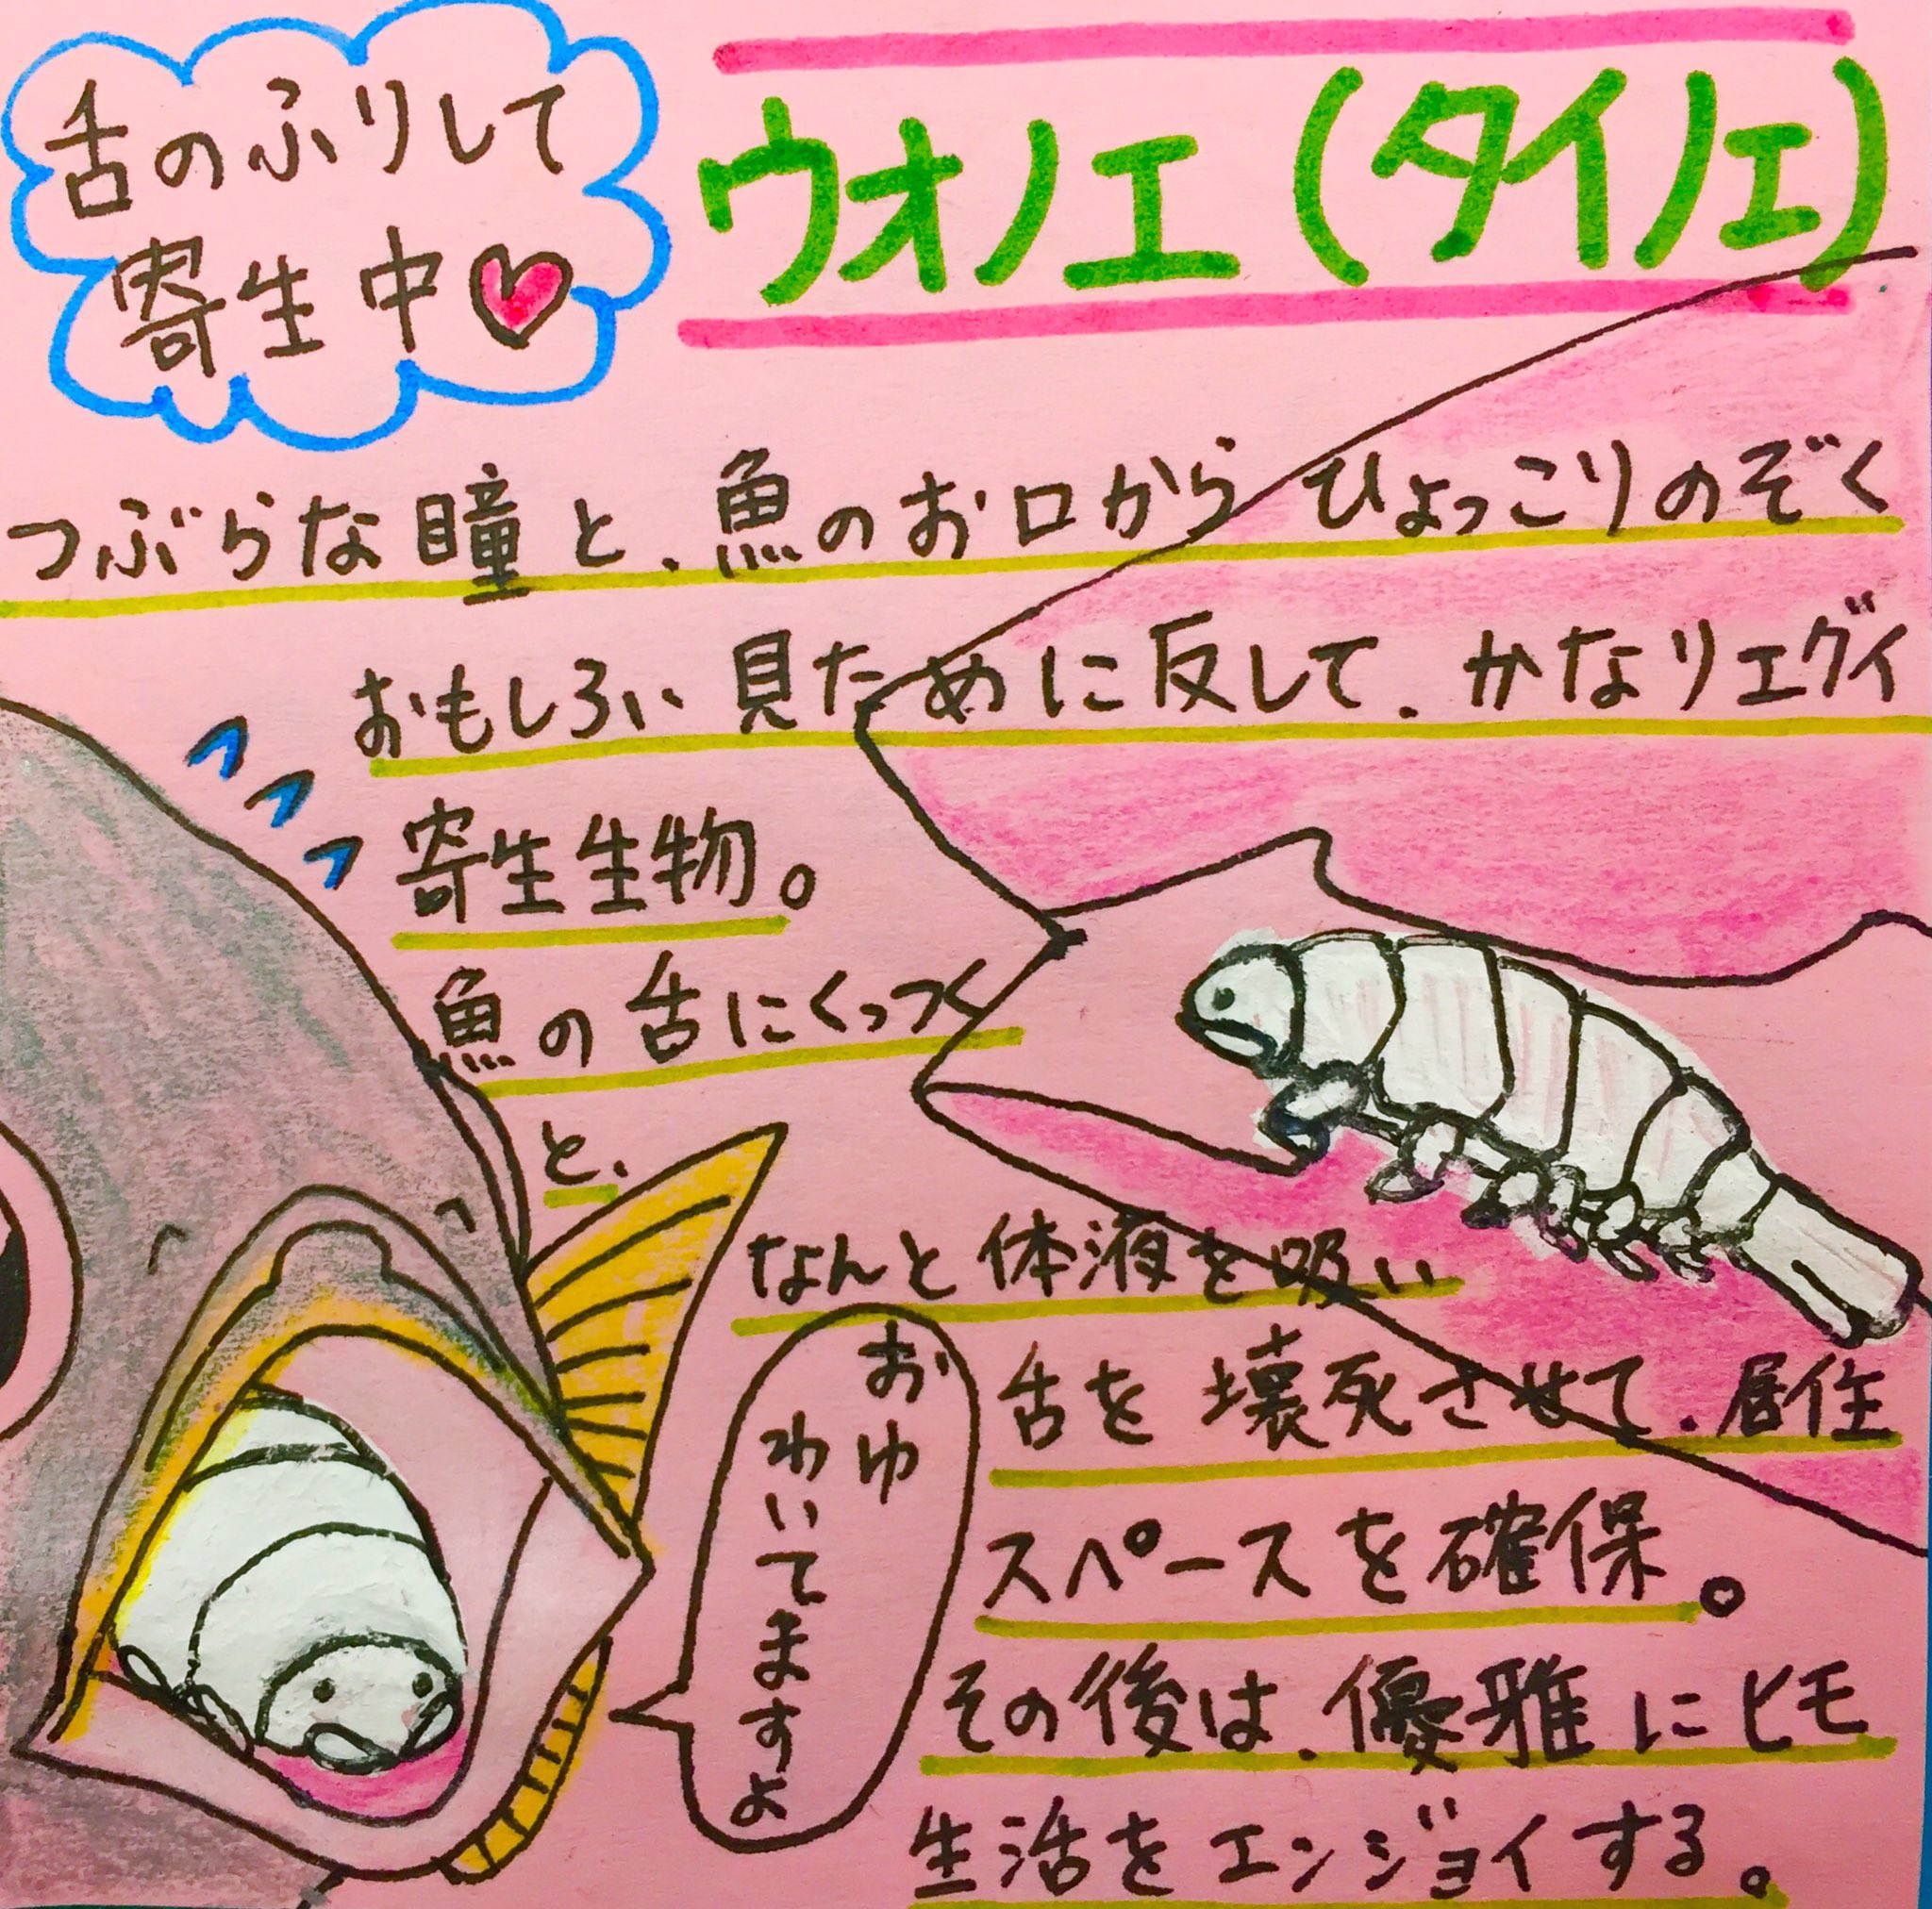 舌のふりして
寄生中
ウオノエ(タイノエ)
つぶらな瞳と、魚のお口からひょっこりのぞく
おもしろい見ために反して、かなりエグイ
寄生生物。
魚の舌にくっつく
と、
なんと体液を吸い
舌を壊死させて、居住
スペースを確保。
その後は、優雅にヒモ
生活をエンジョイする。
おゆ
わいてますよ